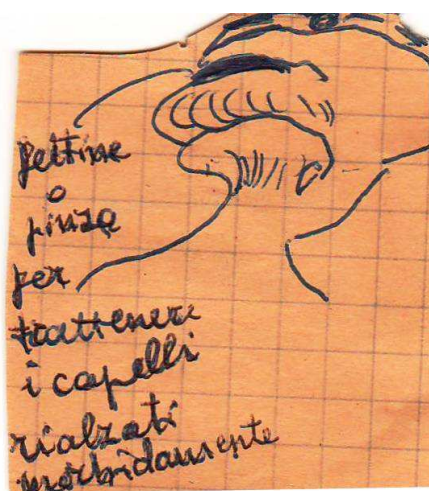 pettine
o
pinza
per
trattenere
i capelli
rialzati
morbidamente